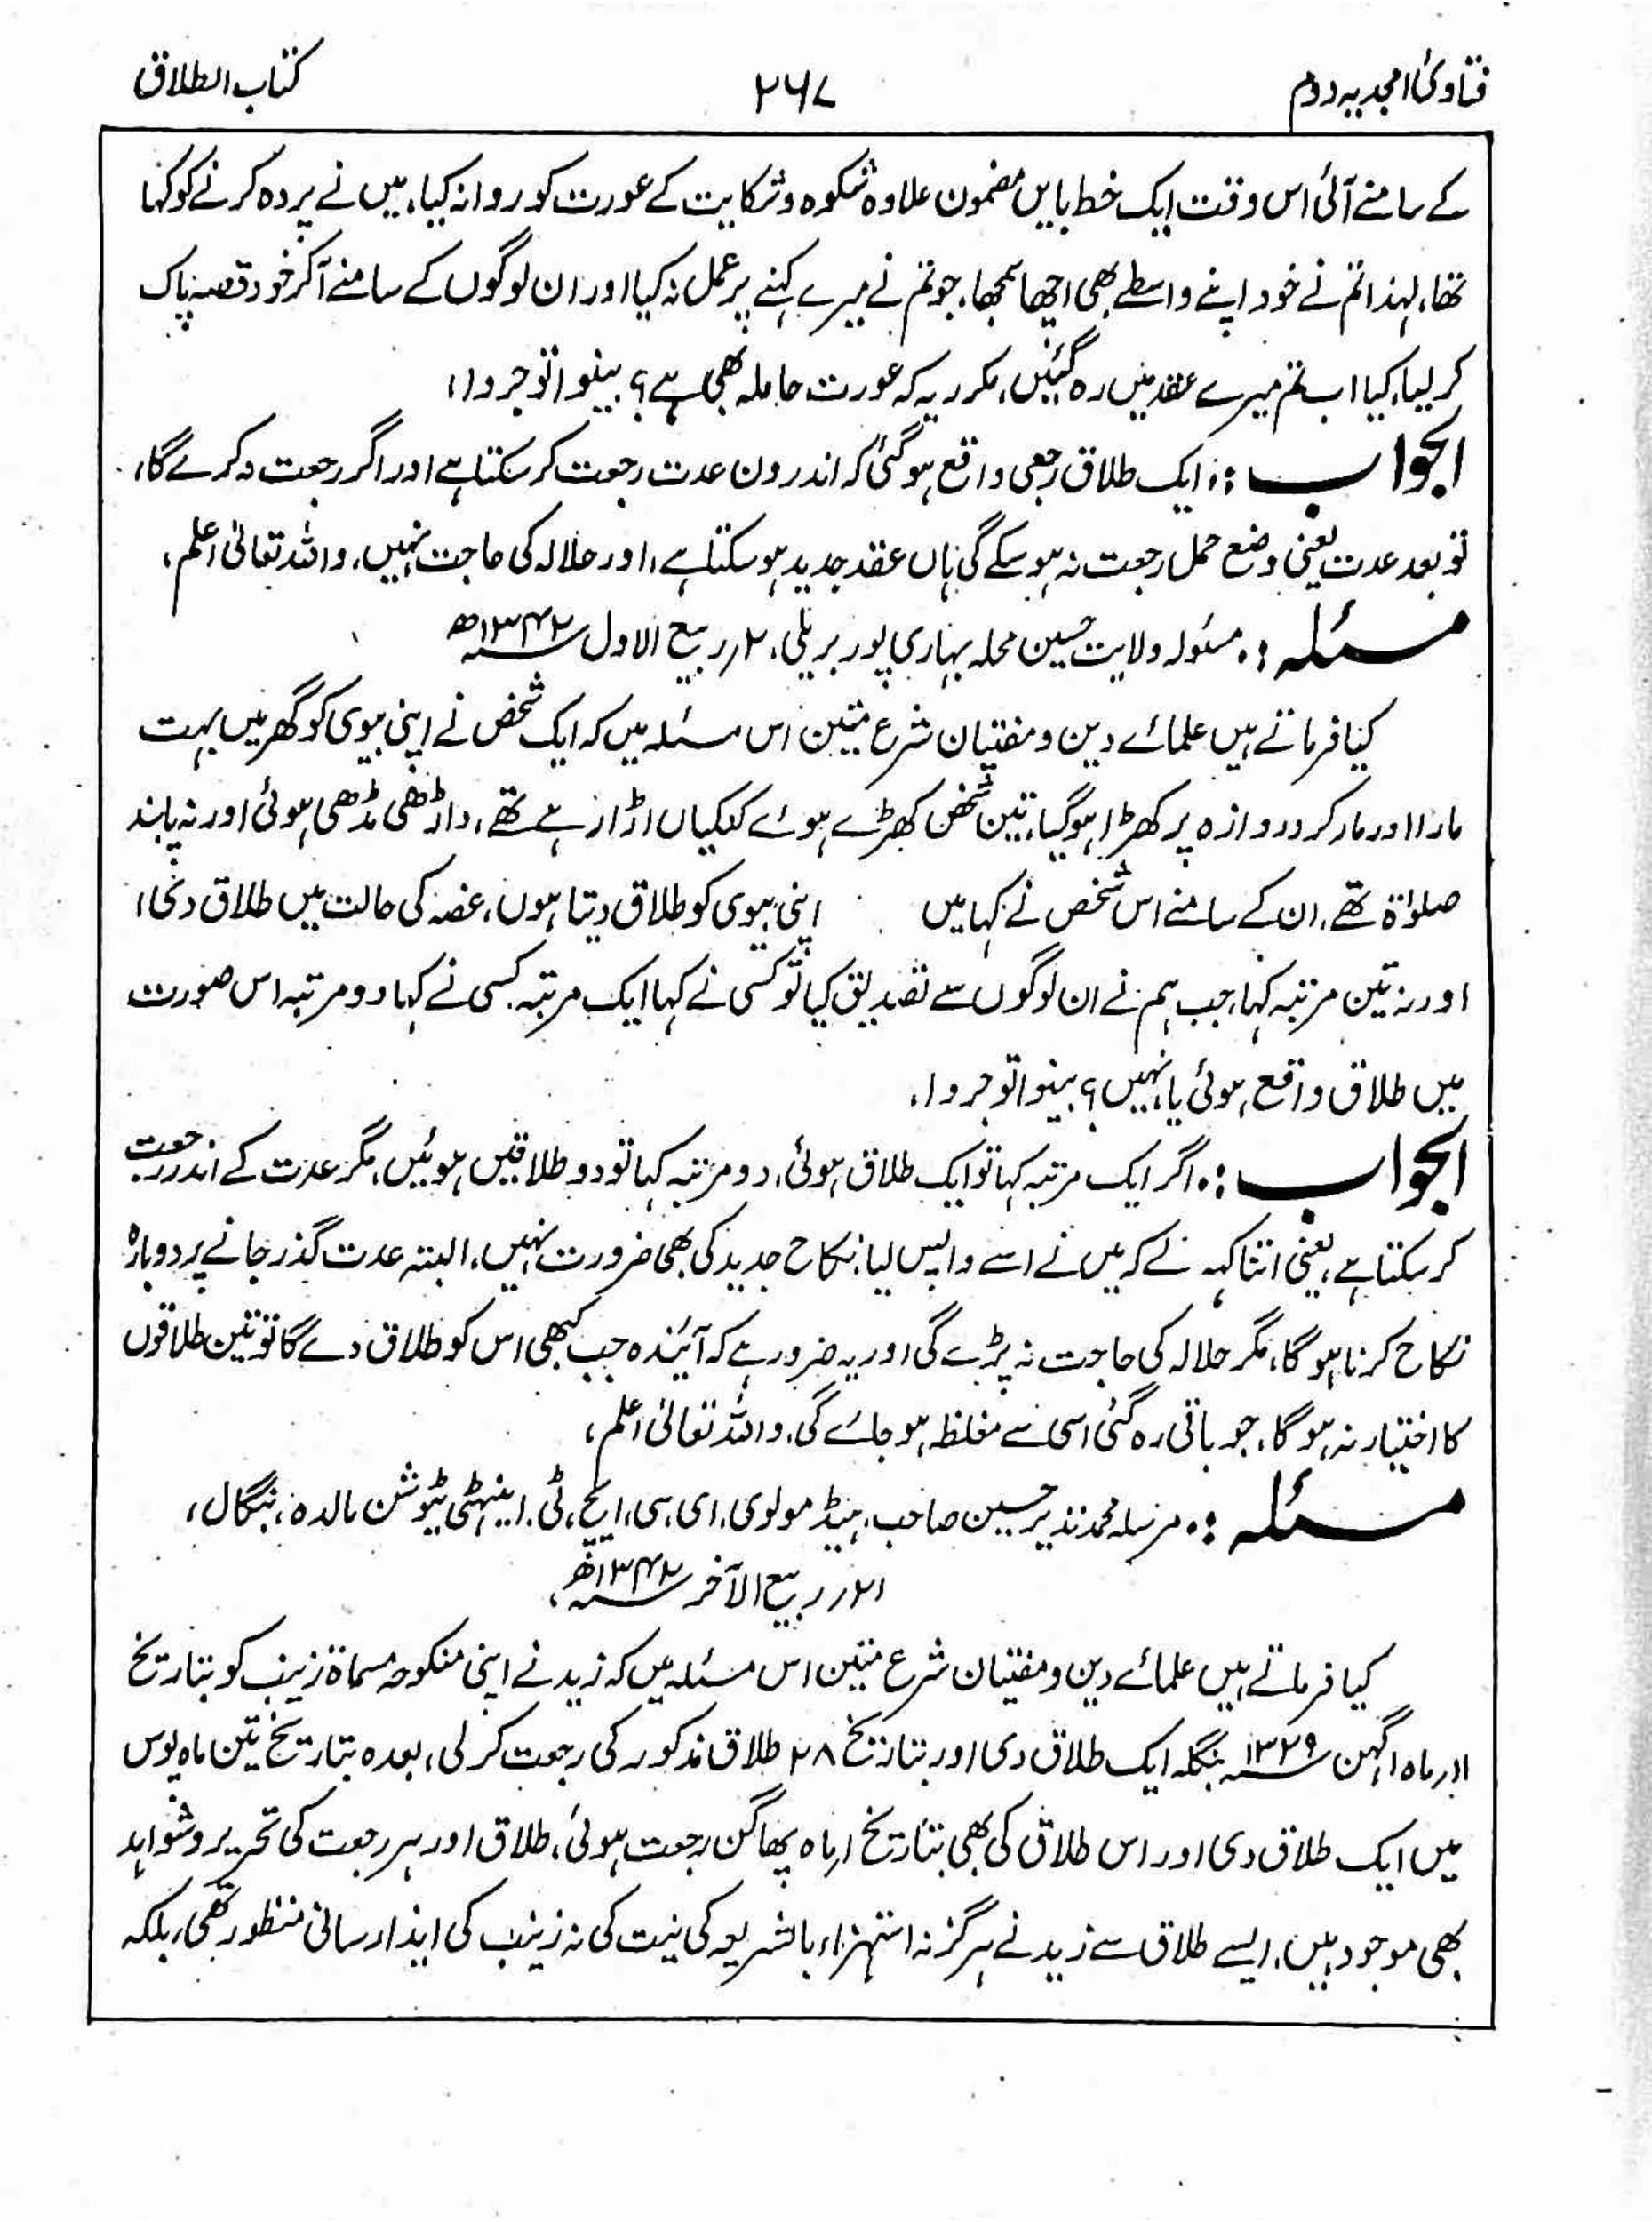 فتاویٰ امجدیہ دوم ۲۶۷ کتاب الطلاق
کے سامنے آئی اس وقت ایک خط بایں مضمون علاوہ شکوہ و شکایت کے عورت کو روانہ کیا، میں نے پردہ کرنے کو کہا
تھا، لہذا تم نے خود اپنے واسطے بھی اچھا سمجھا، جو تم نے میرے کہنے پر عمل نہ کیا اور ان لوگوں کے سامنے آکر خود قصہ پاک
کر لیا، کیا اب تم میرے عقد میں رہ گئیں، مکرر یہ کہ عورت حاملہ بھی ہے؟ بینوا توجروا،
الجواب :: ایک طلاق رجعی واقع ہوگئی کہ اندرون عدت رجعت کر سکتا ہے اور اگر رجعت نہ کرے گا،
تو بعد عدت یعنی وضع حمل رجعت نہ ہو سکے گی ہاں عقد جدید ہو سکتا ہے، اور حلالہ کی حاجت نہیں، واللہ تعالیٰ اعلم،
مسئلہ :۔ مسئولہ ولایت حسین محلہ بہاری پور بریلی، ۲؍ ربیع الاول ۱۳۴۲ھ
کیا فرماتے ہیں علمائے دین و مفتیان شرع متین اس مسئلہ میں کہ ایک شخص نے اپنی بیوی کو گھر میں بہت
مارا اور مار کر دروازہ پر کھڑا ہوگیا، تین شخص کھڑے ہوئے کنکیاں اڑا رہے تھے، داڑھی مڈھی ہوئی اور نہ پابند
صلوٰۃ تھے، ان کے سامنے اس شخص نے کہا میں اپنی بیوی کو طلاق دیتا ہوں، غصہ کی حالت میں طلاق دی،
اور نہ تین مرتبہ کہا، جب ہم نے ان لوگوں سے تصدیق کیا تو کسی نے کہا ایک مرتبہ کسی نے کہا دو مرتبہ اس صورت
میں طلاق واقع ہوئی یا نہیں؟ بینوا توجروا،
الجواب :۔ اگر ایک مرتبہ کہا تو ایک طلاق ہوئی، دو مرتبہ کہا تو دو طلاقیں ہوئیں، مگر عدت کے اندر رجعت
کر سکتا ہے، یعنی اتنا کہہ لے کہ میں نے اسے واپس لیا، نکاح جدید کی بھی ضرورت نہیں، البتہ عدت گذر جانے پر دوبارہ
نکاح کرنا ہوگا، مگر حلالہ کی حاجت نہ پڑے گی اور یہ ضرور ہے کہ آئندہ جب کبھی اس کو طلاق دے گا تو تین طلاقوں
کا اختیار نہ ہوگا، جو باقی رہ گئی اسی سے مغلظہ ہو جائے گی، واللہ تعالیٰ اعلم،
مسئلہ :۔ مرسلہ محمد نذیر حسین صاحب، ہیڈ مولوی، ای، سی، ایچ، ٹی، اینٹی ٹیوشن مالدہ، بنگال،
۲۱؍ ربیع الآخر ۱۳۴۲ھ،
کیا فرماتے ہیں علمائے دین و مفتیان شرع متین اس مسئلہ میں کہ زید نے اپنی منکوحہ مسماۃ زینب کو بتاریخ
۱۱؍ ماہ اگہن ۱۳۲۹ بنگلہ ایک طلاق دی اور بتاریخ ۲۸ طلاق مذکور کی رجعت کر لی، بعدہ بتاریخ تین ماہ پوس
میں ایک طلاق دی اور اس طلاق کی بھی بتاریخ ۱؍ ماہ پھاگن رجعت ہوئی، طلاق اور ہر رجعت کی تحریر و شواہد
بھی موجود ہیں، ایسے طلاق سے زید نے ہرگز نہ استہزاء بالشریعہ کی نیت کی نہ زینب کی ایذا رسانی منظور تھی، بلکہ